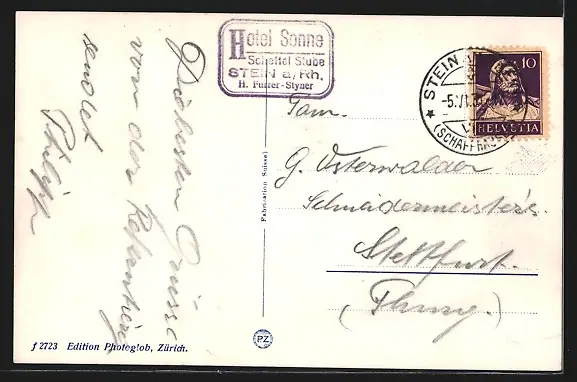 Hotel Sonne
Scheffel Stube
STEIN a/Rh.
H. Furrer-Styner
10
HELVETIA
STEIN
-5.VI.
(SCHAFFHAUSEN)
Fam.
G. Osterwalder
Schneidermeister's.
Stettfurt.
(Thurg.)
Liebesten Grüsse
von der
sendet
Philipp
Fabrication Suisse
f 2723 Edition Photoglob, Zürich.
PZ